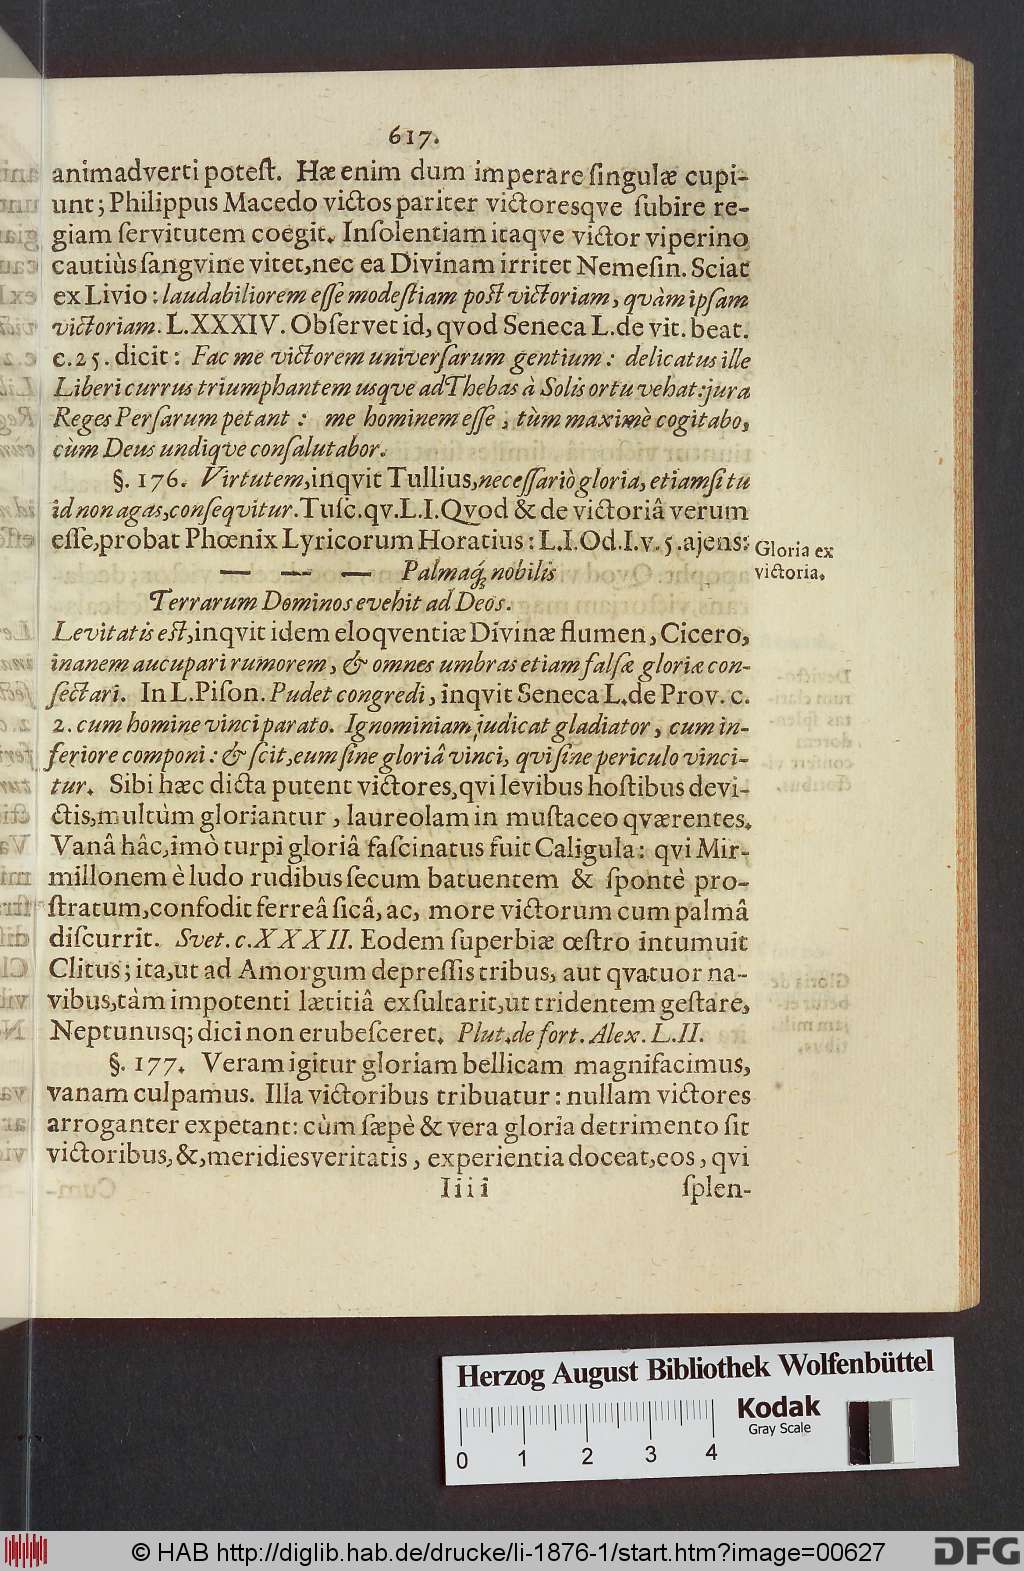 617.
animadverti poteſt. Hæ enim dum imperare ſingulæ cupi-
unt; Philippus Macedo victos pariter victoresqve ſubire re-
giam ſervitutem coegit. Inſolentiam itaqve victor viperino
cautiùs ſangvine vitet, nec ea Divinam irritet Nemeſin. Sciat
ex Livio: laudabiliorem eſſe modeſtiam poſt victoriam, qvàm ipſam
victoriam. L.XXXIV. Obſervet id, qvod Seneca L.de vit. beat.
c.25. dicit: Fac me victorem univerſarum gentium: delicatus ille
Liberi currus triumphantem usqve ad Thebas à Solis ortu vehat: jura
Reges Perſarum petant: me hominem eſſe, tùm maximè cogitabo,
cùm Deus undiqve conſalutabor.
§. 176. Virtutem, inqvit Tullius, neceſſariò gloria, etiamſi tu
id non agas, conſeqvitur. Tuſc.qv.L.I.Qvod & de victoriâ verum
eſſe, probat Phœnix Lyricorum Horatius: L.I.Od.I.v.5.ajens:
Gloria ex
victoria.
— — — Palmaq; nobilis
Terrarum Dominos evehit ad Deos.
Levitatis eſt, inqvit idem eloqventiæ Divinæ flumen, Cicero,
inanem aucupari rumorem, & omnes umbras etiam falſæ gloriæ con-
ſectari. In L.Piſon. Pudet congredi, inqvit Seneca L.de Prov. c.
2. cum homine vinci parato. Ignominiam judicat gladiator, cum in-
feriore componi: & ſcit, eum ſine gloriâ vinci, qvi ſine periculo vinci-
tur. Sibi hæc dicta putent victores, qvi levibus hoſtibus devi-
ctis, multùm gloriantur, laureolam in muſtaceo qværentes.
Vanâ hâc, imò turpi gloriâ faſcinatus fuit Caligula: qvi Mir-
millonem è ludo rudibus ſecum batuentem & ſpontè pro-
ſtratum, confodit ferreâ ſicâ, ac, more victorum cum palmâ
diſcurrit. Svet. c.XXXII. Eodem ſuperbiæ œſtro intumuit
Clitus; ita, ut ad Amorgum depreſſis tribus, aut qvatuor na-
vibus, tàm impotenti lætitiâ exſultarit, ut tridentem geſtare,
Neptunusq; dici non erubeſceret. Plut. de fort. Alex. L.II.
§. 177. Veram igitur gloriam bellicam magnifacimus,
vanam culpamus. Illa victoribus tribuatur: nullam victores
arroganter expetant: cùm ſæpè & vera gloria detrimento ſit
victoribus, &, meridies veritatis, experientia doceat, eos, qvi
Iiii ſplen-
Herzog August Bibliothek Wolfenbüttel
Kodak
Gray Scale
0 1 2 3 4
© HAB http://diglib.hab.de/drucke/li-1876-1/start.htm?image=00627
DFG